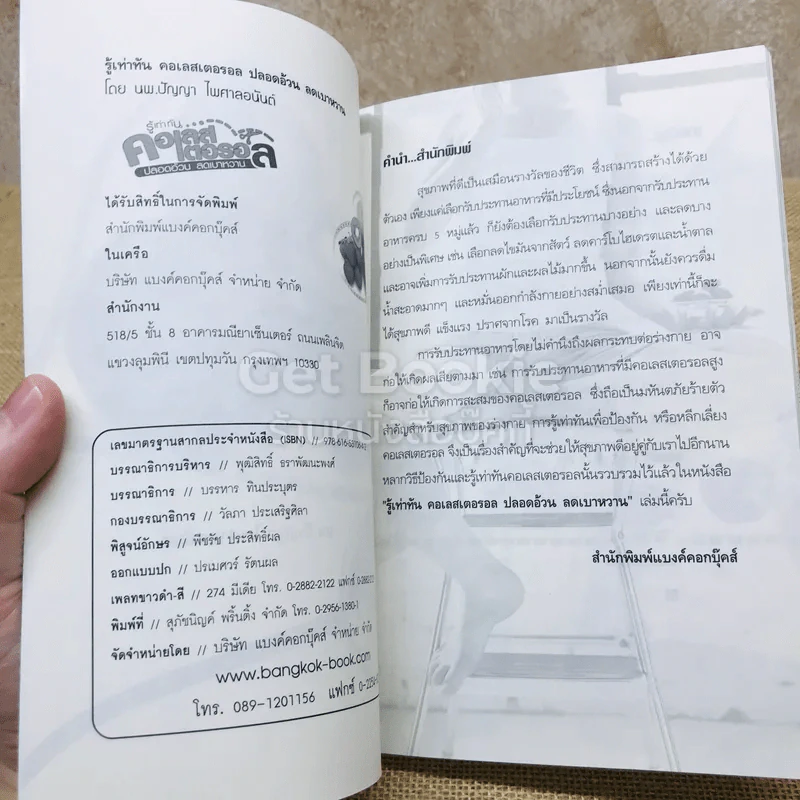 รู้เท่าทัน คอเลสเตอรอล ปลอดอ้วน ลดเบาหวาน
โดย นพ.ปัญญา ไพศาลอนันต์
รู้เท่าทัน
คอเลสเตอรอล
ปลอดอ้วน ลดเบาหวาน
ได้รับสิทธิ์ในการจัดพิมพ์
สำนักพิมพ์แบงค์คอกบุ๊คส์
ในเครือ
บริษัท แบงค์คอกบุ๊คส์ จำหน่าย จำกัด
สำนักงาน
518/5 ชั้น 8 อาคารมณียาเซ็นเตอร์ ถนนเพลินจิต
แขวงลุมพินี เขตปทุมวัน กรุงเทพฯ 10330
เลขมาตรฐานสากลประจำหนังสือ (ISBN) //
บรรณาธิการบริหาร // พุฒิสิทธิ์ ธราพัฒนะพงศ์
บรรณาธิการ // บรรหาร ทินประบุตร
กองบรรณาธิการ // วัลภา ประเสริฐศิลา
พิสูจน์อักษร // พีชรัช ประสิทธิ์ผล
ออกแบบปก // ปรเมศวร์ รัตนผล
เพลทขาวดำ-สี // 274 มีเดีย โทร. 0-2882-2122 แฟกซ์
พิมพ์ที่ // สุภัชนิญค์ พริ้นติ้ง จำกัด โทร. 0-2956-1380-1
จัดจำหน่ายโดย // บริษัท แบงค์คอกบุ๊คส์ จำหน่าย จำกัด
www.bangkok-book.com
โทร. 089-1201156 แฟกซ์
คำนำ...สำนักพิมพ์
สุขภาพที่ดีเป็นเสมือนรางวัลของชีวิต ซึ่งสามารถสร้างได้ด้วย
ตัวเอง เพียงแค่เลือกรับประทานอาหารที่มีประโยชน์ ซึ่งนอกจากรับประทาน
อาหารครบ 5 หมู่แล้ว ก็ยังต้องเลือกรับประทานบางอย่าง และลดบาง
อย่างเป็นพิเศษ เช่น เลือกลดไขมันจากสัตว์ ลดคาร์โบไฮเดรตและน้ำตาล
และอาจเพิ่มการรับประทานผักและผลไม้มากขึ้น นอกจากนั้นยังควรดื่ม
น้ำสะอาดมากๆ และหมั่นออกกำลังกายอย่างสม่ำเสมอ เพียงเท่านี้ก็จะ
ได้สุขภาพดี แข็งแรง ปราศจากโรค มาเป็นรางวัล
การรับประทานอาหารโดยไม่คำนึงถึงผลกระทบต่อร่างกาย อาจ
ก่อให้เกิดผลเสียตามมา เช่น การรับประทานอาหารที่มีคอเลสเตอรอลสูง
ก็อาจก่อให้เกิดการสะสมของคอเลสเตอรอล ซึ่งถือเป็นมหันตภัยร้ายตัว
สำคัญสำหรับสุขภาพของร่างกาย การรู้เท่าทันเพื่อป้องกัน หรือหลีกเลี่ยง
คอเลสเตอรอล จึงเป็นเรื่องสำคัญที่จะช่วยให้สุขภาพดีอยู่คู่กับเราไปอีกนาน
หลากวิธีป้องกันและรู้เท่าทันคอเลสเตอรอลนั้นรวบรวมไว้แล้วในหนังสือ
"รู้เท่าทัน คอเลสเตอรอล ปลอดอ้วน ลดเบาหวาน" เล่มนี้ครับ
สำนักพิมพ์แบงค์คอกบุ๊คส์
Get Bookie